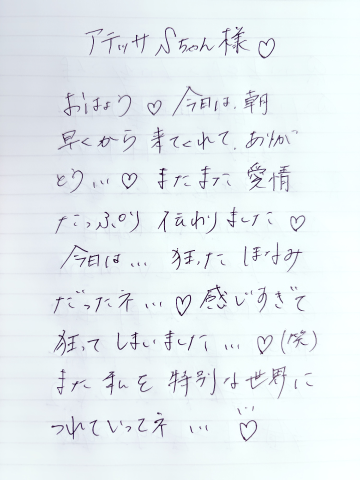 アテッサSちゃん様♡
おはよう♡今日は、朝
早くから来てくれて、ありが
とう...♡またまた愛情
たっぷり伝わりました♡
今日は...狂ったほなみ
だったネ...♡感じすぎて
狂ってしまいました...♡(笑)
また私を特別な世界に
つれていってネ...♡